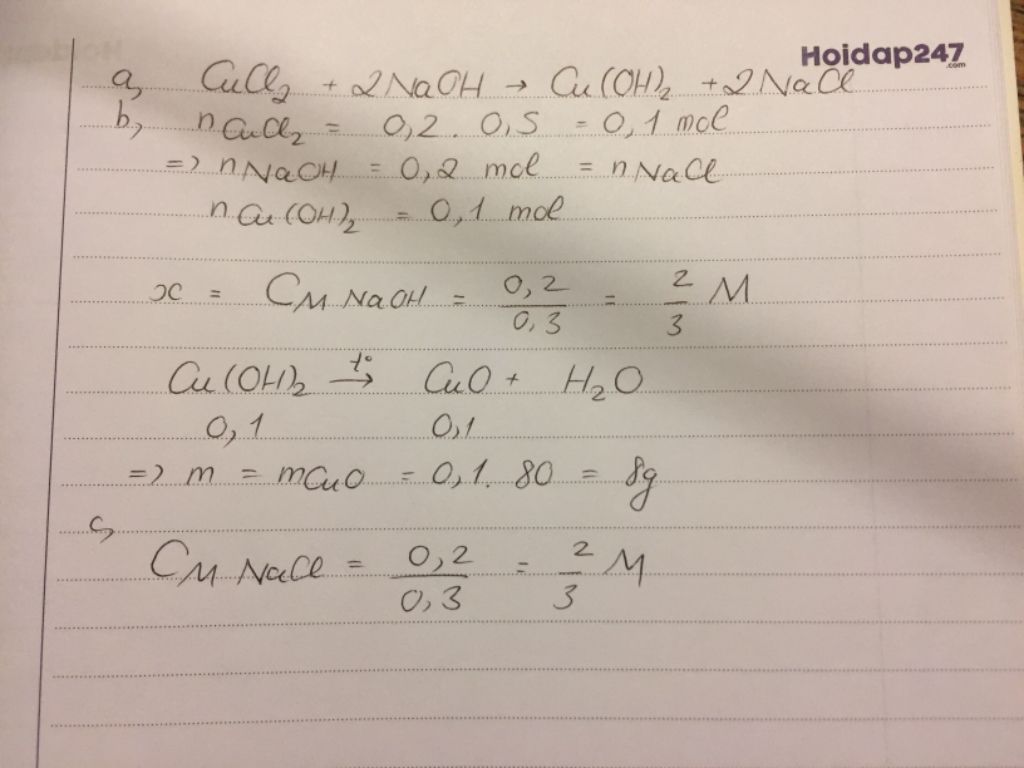 Hoidap247
.com
a, CuCl₂ + 2NaOH → Cu(OH)₂ + 2NaCl
b, nCuCl₂ = 0,2 . 0,5 = 0,1 mol
=> nNaOH = 0,2 mol = nNaCl
nCu(OH)₂ = 0,1 mol
x = CM NaOH = 0,2/0,3 = 2/3 M
Cu(OH)₂ →t° CuO + H₂O
0,1 0,1
=> m = mCuO = 0,1. 80 = 8g
c,
CM NaCl = 0,2/0,3 = 2/3 M